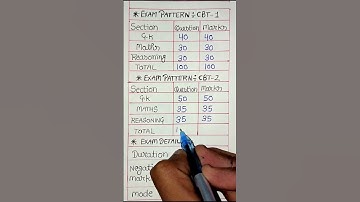 * EXAM PATTERN : CBT-1
Section Question Marks
G.K 40 40
Maths 30 30
Reasoning 30 30
TOTAL 100 100
* EXAM PATTERN : CBT-2
Section Question Marks
G.K 50 50
MATHS 35 35
REASONING 35 35
TOTAL 1
* EXAM DETAIL
Duration
Negati
mark
mode